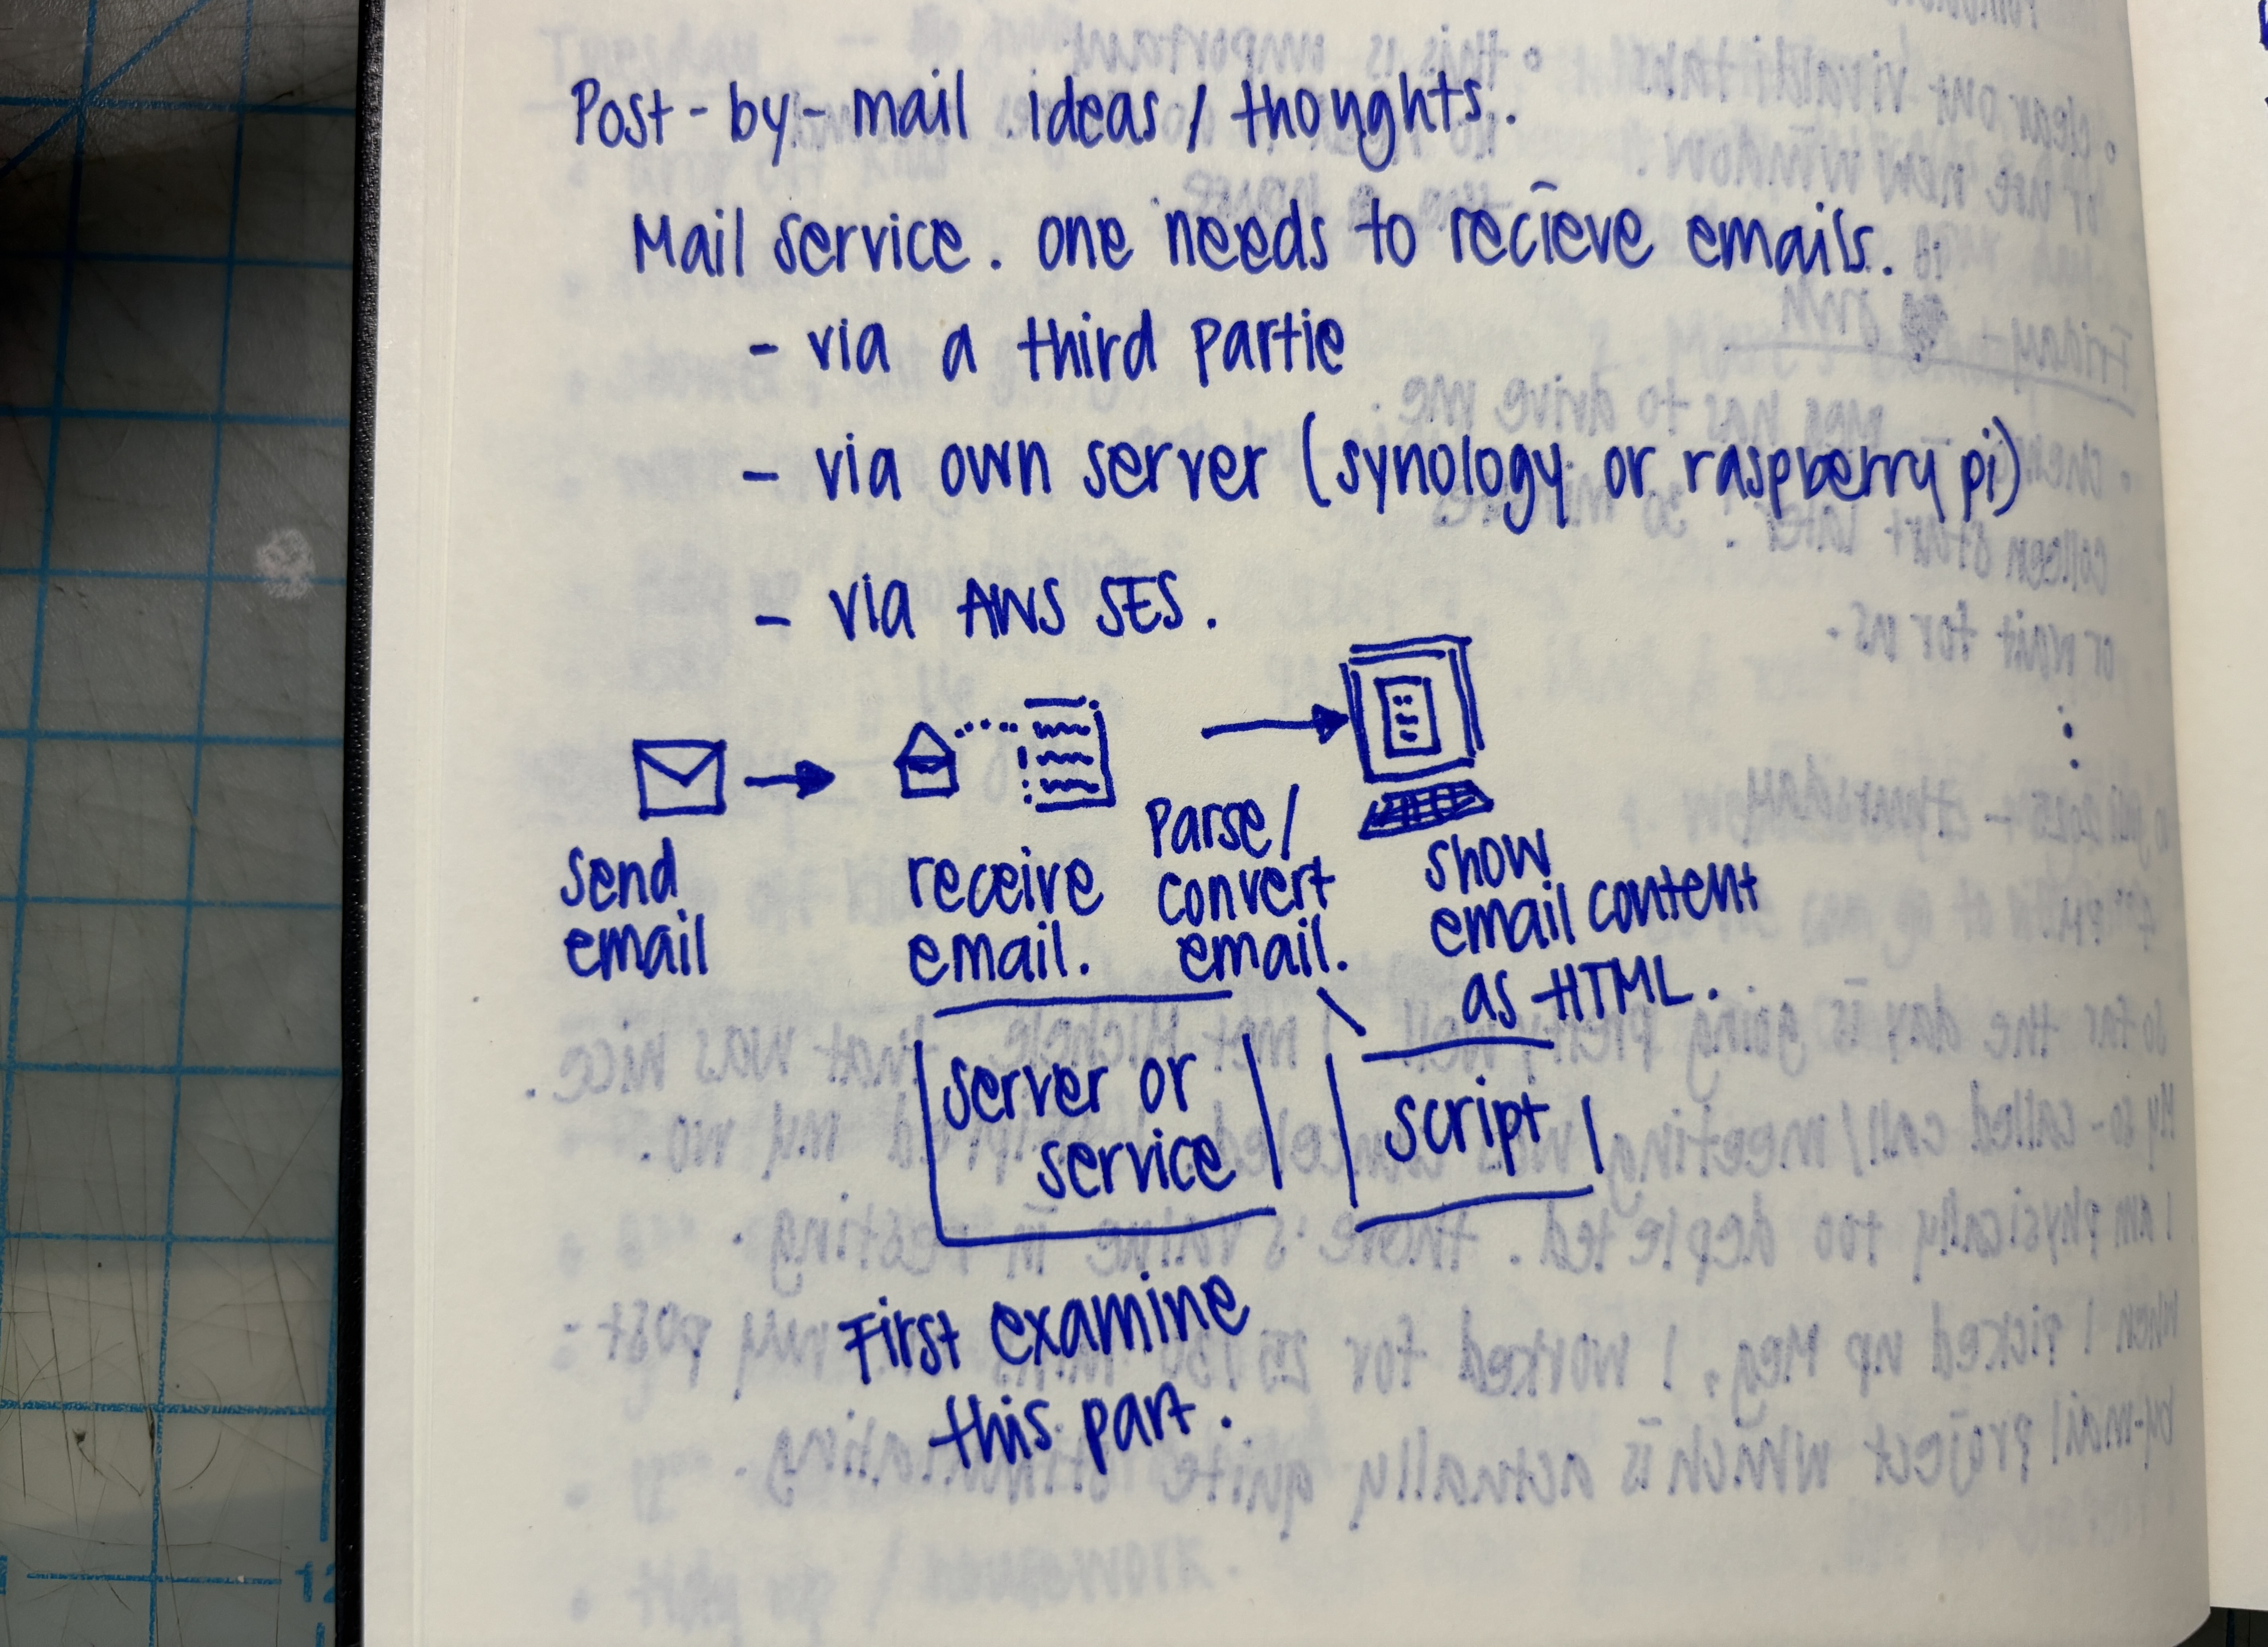 Post-by-mail ideas / thoughts.
Mail service. one needs to recieve emails.
- via a third partie
- via own server (synology or raspberry pi)
- via AWS SES.
send
email
receive
email.
Parse/
convert
email.
show
email content
as HTML.
server or
service
script
First examine
this part.